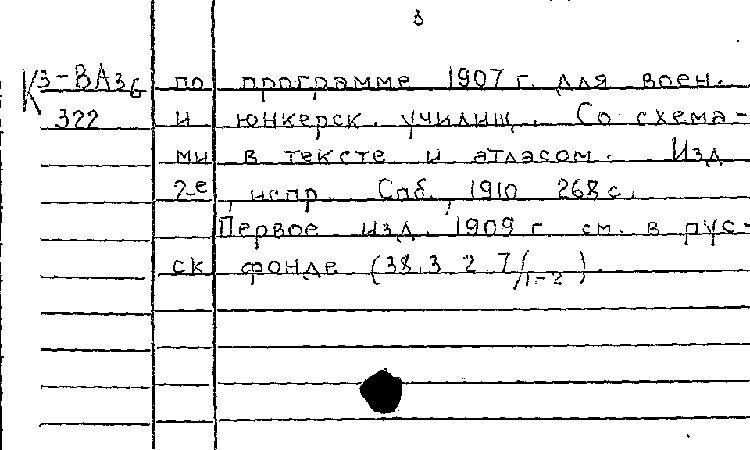 3
К3-ВА36 по программе 1907 г. для воен.
322 и юнкерск. училищ. Со схема-
ми в тексте и атласом. Изд
2-е, испр. Спб, 1910 268 с.
Первое изд. 1909 г см. в рус-
ск фонде (38.3.2.7/1-2).